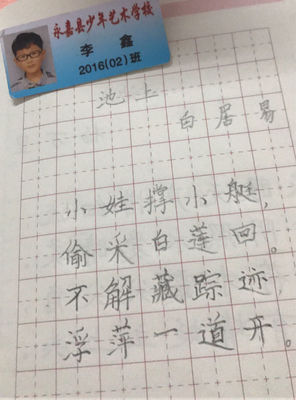 永嘉县少年艺术学校
李鑫
2016(02)班
池上
白居易
小娃撑小艇,
偷采白莲回。
不解藏踪迹
浮萍一道开。